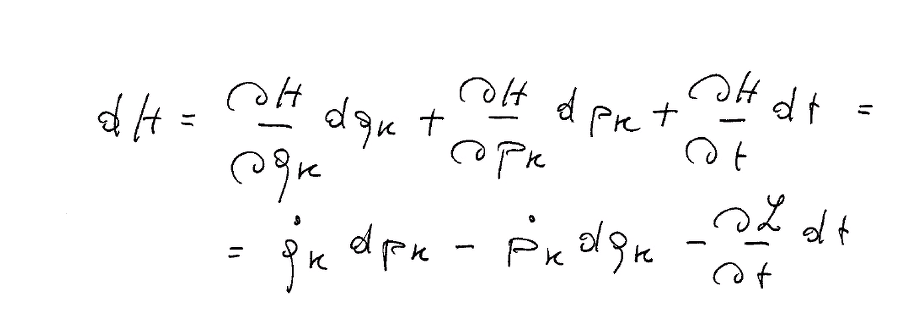 dH = ∂H/∂qₖ dqₖ + ∂H/∂pₖ dpₖ + ∂H/∂t dt =
= q̇ₖ dpₖ − ṗₖ dqₖ − ∂ℒ/∂t dt